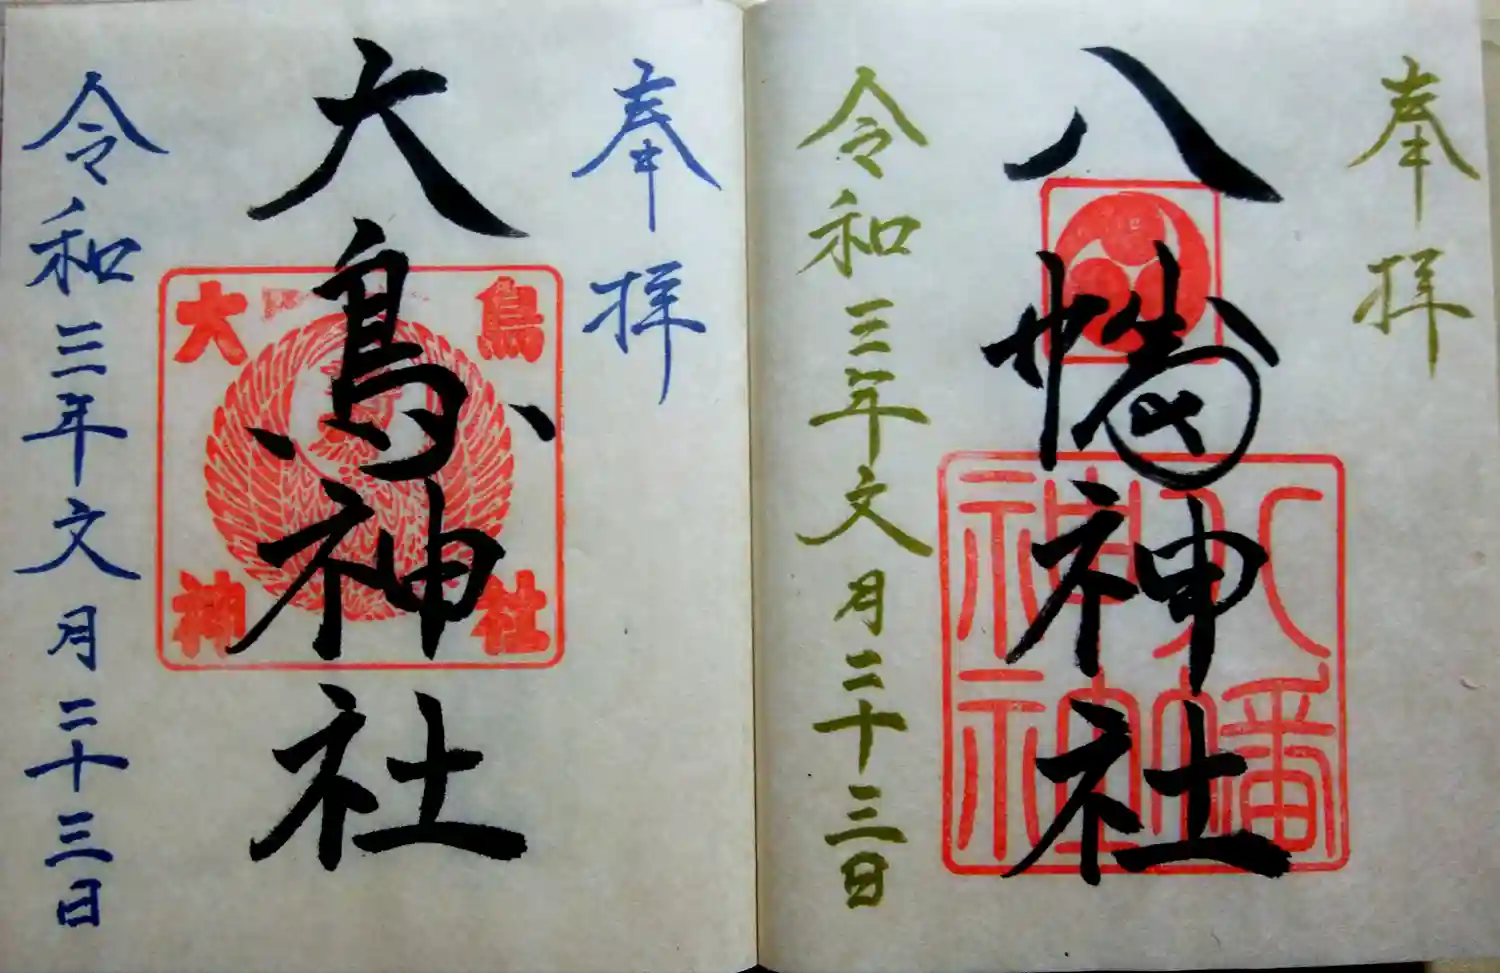 奉拝
八幡神社
八幡
神社
令和三年文月二十三日
奉拝
大鳥神社
大鳥
神社
令和三年文月二十三日